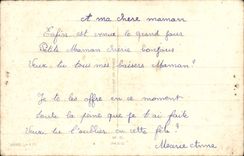 A ma chère maman
Enfin est venu le grand jour
Petite Maman chérie bonjour
Veux-tu tous mes baisers Maman?
Je te les offre en ce moment
toute la pene que je t'ai faite
Veux tu l'oublier en cette fête?
Marie Anne